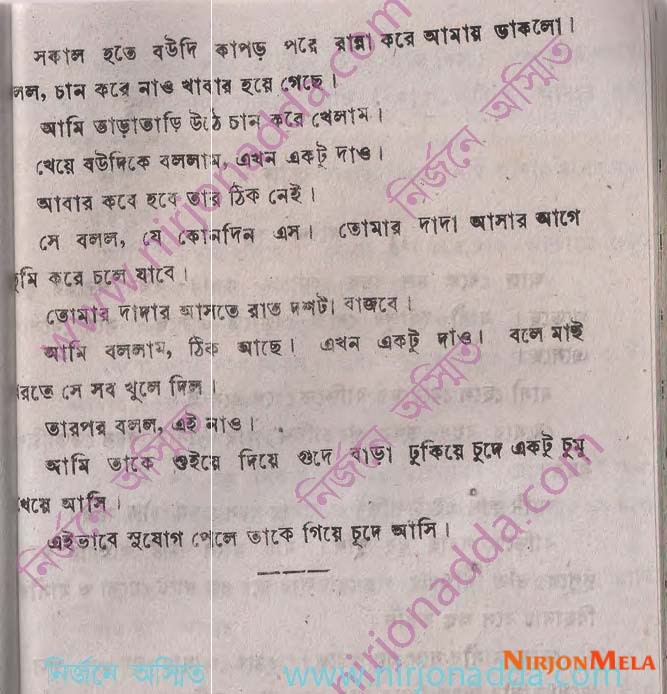 সকাল হতে বউদি কাপড় পরে রান্না করে আমায় ডাকলো।
লল, চান করে নাও খাবার হয়ে গেছে।
আমি তাড়াতাড়ি উঠে চান করে খেলাম।
খেয়ে বউদিকে বললাম, এখন একটু দাও।
আবার কবে হবে তার ঠিক নেই।
সে বলল, যে কোনদিন এস। তোমার দাদা আসার আগে
তুমি করে চলে যাবে।
তোমার দাদার আসতে রাত দশটা বাজবে।
আমি বললাম, ঠিক আছে। এখন একটু দাও। বলে মাই
ধরতে সে সব খুলে দিল।
তারপর বলল, এই নাও।
আমি তাকে শুইয়ে দিয়ে গুদে বাড়া ঢুকিয়ে চুদে একটু চুমু
খেয়ে আসি।
এইভাবে সুযোগ পেলে তাকে গিয়ে চুদে আসি।
www.nirjonadda.com
নির্জনে অস্মিত
নির্জনে অস্মিত
নির্জনে অস্মিত
nirjonadda.com
নির্জনে অস্মিত
www.nirjonadda.com
NIRJONMELA